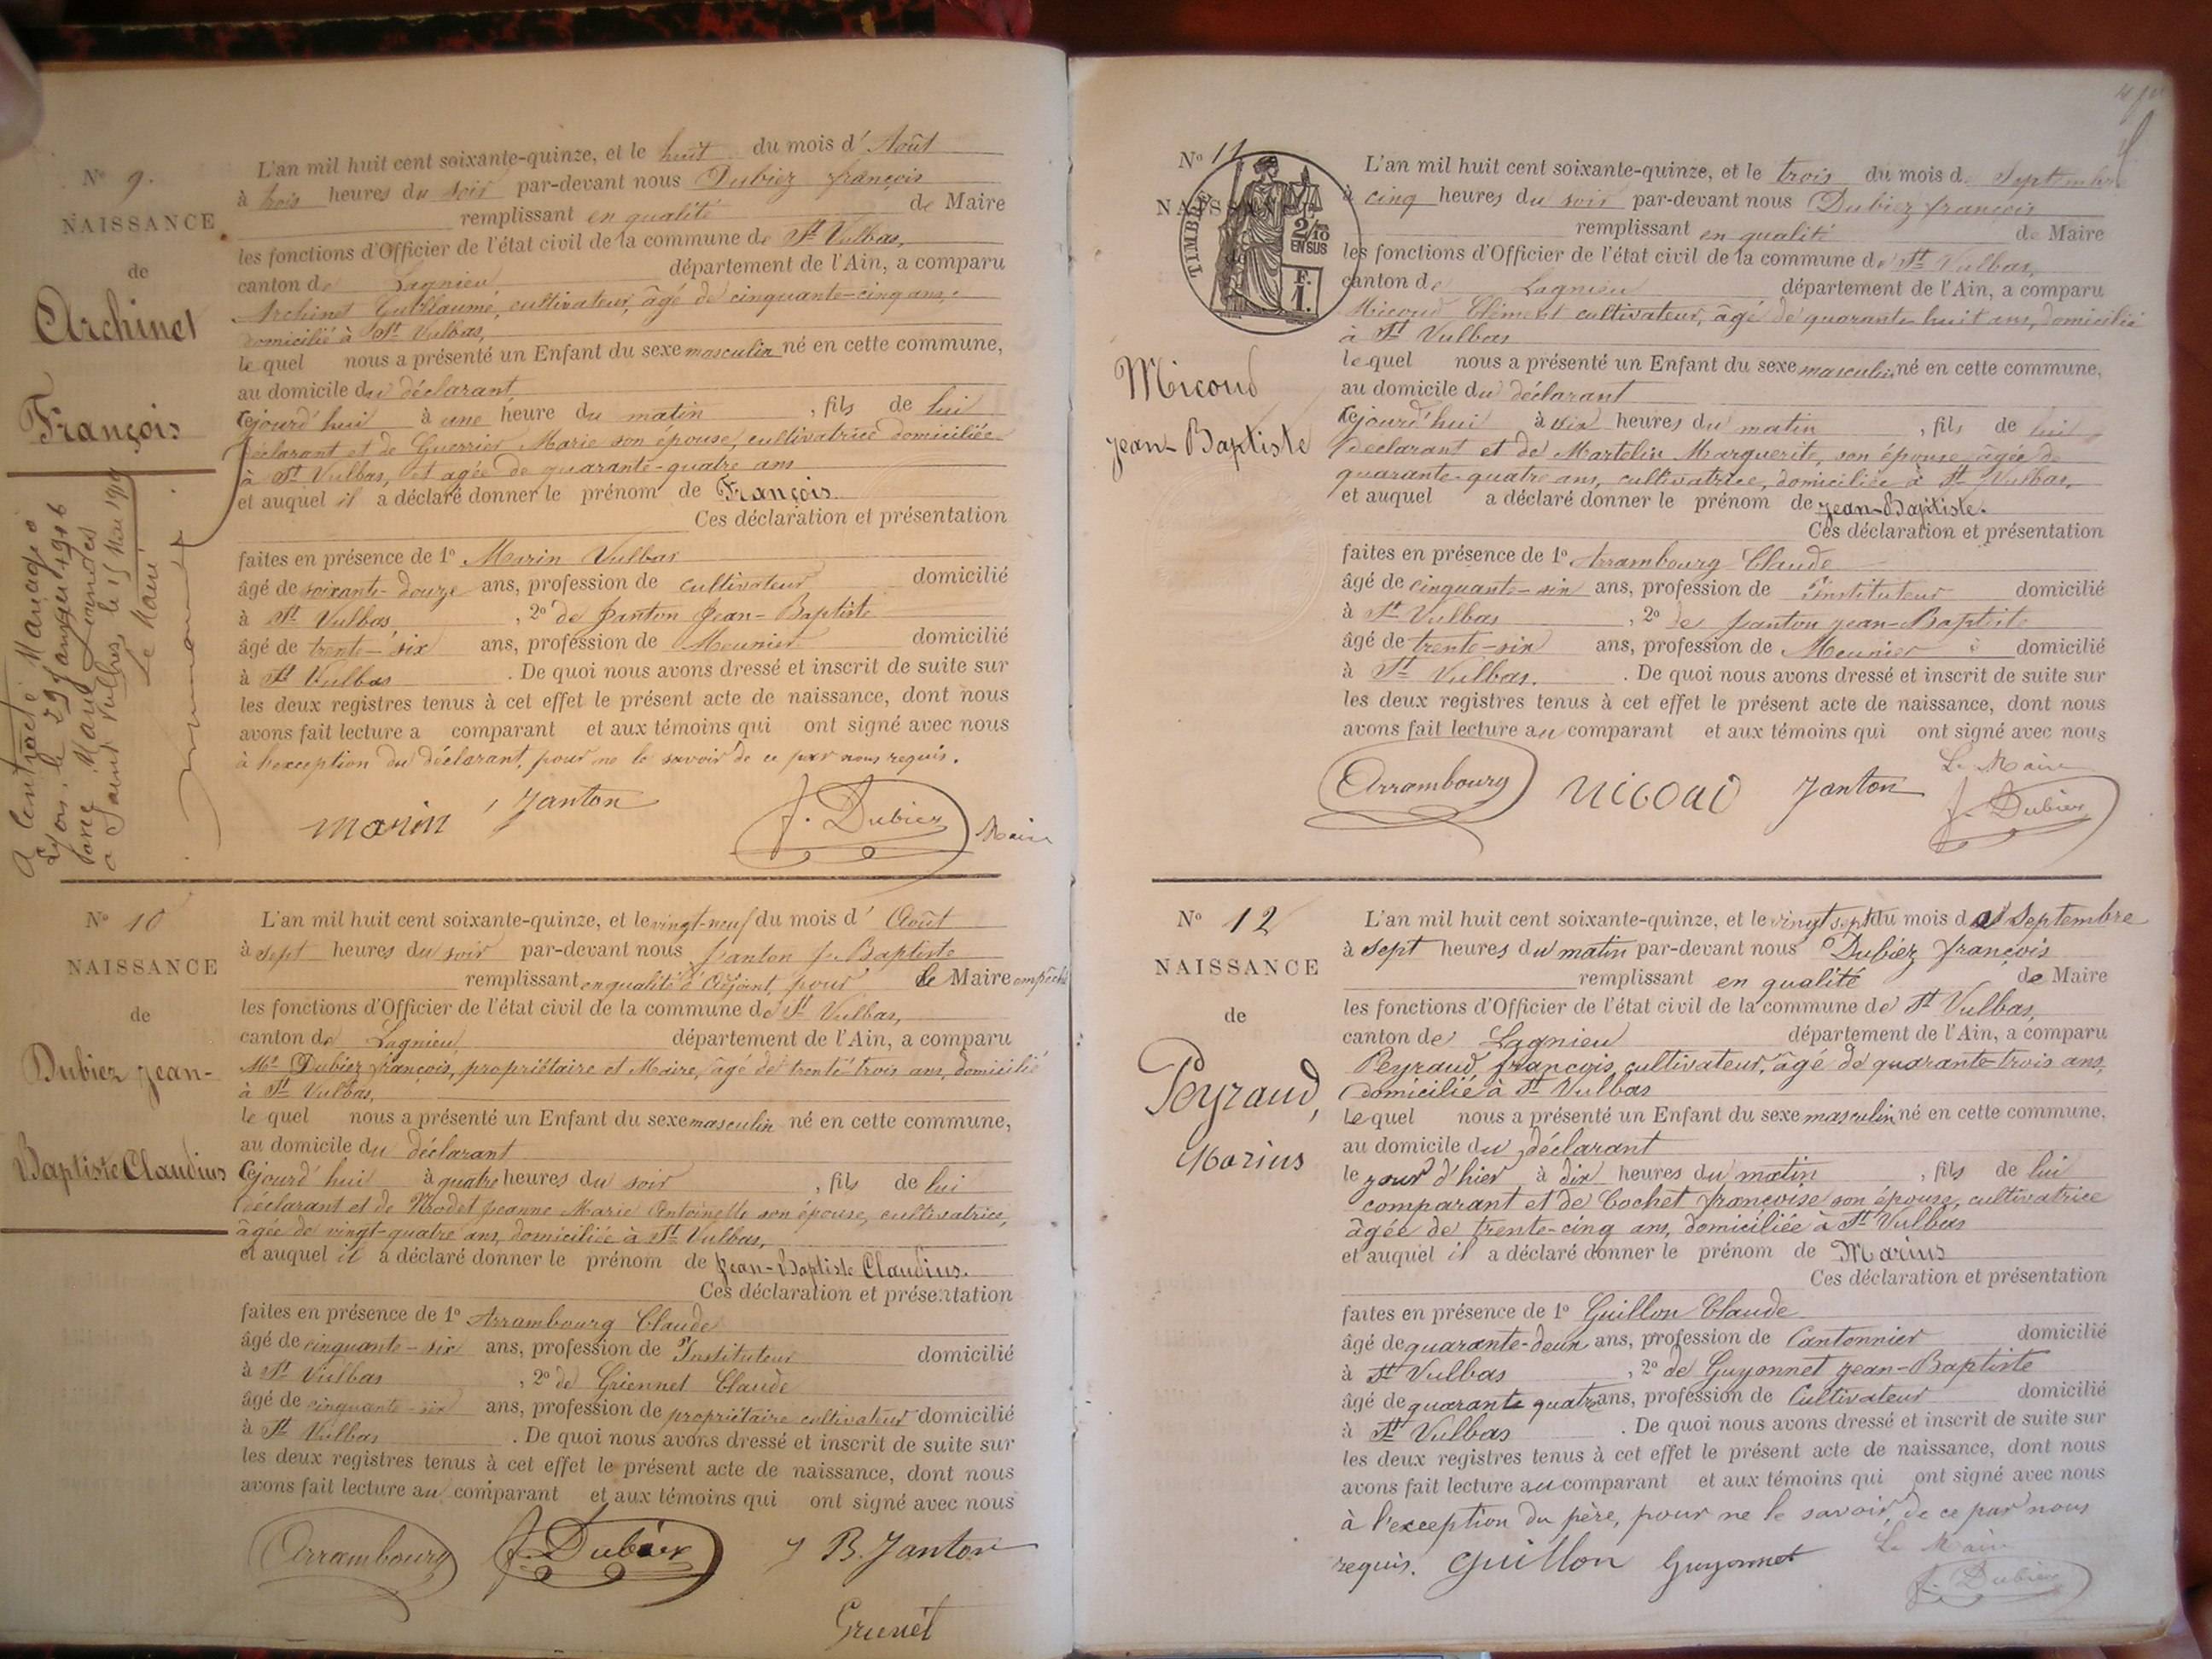 N° 9.
NAISSANCE
de
Archinet
François
L'an mil huit cent soixante-quinze, et le huit du mois d' Août
à trois heures du soir par-devant nous Dubiez françois
remplissant en qualité de Maire
les fonctions d'Officier de l'état civil de la commune de St Vulbas,
canton de Lagnieu département de l'Ain, a comparu
Archinet Guillaume, cultivateur, âgé de cinquante-cinq ans,
domicilié à St Vulbas,
le quel nous a présenté un Enfant du sexe masculin né en cette commune,
au domicile du déclarant
cejourd'hui à une heure du matin , fils de lui
déclarant et de Guerrier Marie son épouse, cultivatrice domiciliée
à St Vulbas, et agée de quarante-quatre ans
et auquel il a déclaré donner le prénom de François.
Ces déclaration et présentation
faites en présence de 1° Marin Vulbas
âgé de soixante-douze ans, profession de cultivateur domicilié
à St Vulbas , 2° de Janton Jean-Baptiste
âgé de trente-six ans, profession de Meunier domicilié
à St Vulbas . De quoi nous avons dressé et inscrit de suite sur
les deux registres tenus à cet effet le présent acte de naissance, dont nous
avons fait lecture a comparant et aux témoins qui ont signé avec nous
à l'exception du déclarant, pour ne le savoir de ce par nous requis.
marin Janton f. Dubiez Maire
A contracté Mariage à
Lyon, le 29 1906
avec Marie
à Saint Vulbas, le 15 Mai
Le Maire
N° 10
NAISSANCE
de
Dubiez Jean-
Baptiste Claudius
L'an mil huit cent soixante-quinze, et le vingt-neuf du mois d' Août
à sept heures du soir par-devant nous Janton J. Baptiste
remplissant en qualité d'Adjoint, pour le Maire empêché
les fonctions d'Officier de l'état civil de la commune de St Vulbas,
canton de Lagnieu département de l'Ain, a comparu
Mr Dubiez françois, propriétaire et Maire, âgé de trente-trois ans, domicilié
à St Vulbas,
le quel nous a présenté un Enfant du sexe masculin né en cette commune,
au domicile du déclarant
cejourd'hui à quatre heures du soir , fils de lui
déclarant et de Jeanne Marie Antoinette son épouse, cultivatrice,
âgée de vingt-quatre ans, domiciliée à St Vulbas,
et auquel il a déclaré donner le prénom de Jean-Baptiste Claudius.
Ces déclaration et présentation
faites en présence de 1° Arrambourg Claude
âgé de cinquante-six ans, profession de Instituteur domicilié
à St Vulbas , 2° de Claude
âgé de cinquante-six ans, profession de propriétaire cultivateur domicilié
à St Vulbas . De quoi nous avons dressé et inscrit de suite sur
les deux registres tenus à cet effet le présent acte de naissance, dont nous
avons fait lecture au comparant et aux témoins qui ont signé avec nous
Arrambourg f. Dubiez J B. Janton
N° 11
NAISSA
TIMBRE
2/10
EN SUS
F.
1.
Micoud
Jean-Baptiste
L'an mil huit cent soixante-quinze, et le trois du mois de Septembre
à cinq heures du soir par-devant nous Dubiez françois
remplissant en qualité de Maire
les fonctions d'Officier de l'état civil de la commune de St Vulbas,
canton de Lagnieu département de l'Ain, a comparu
Micoud Clément cultivateur, âgé de quarante-huit ans, domicilié
à St Vulbas
le quel nous a présenté un Enfant du sexe masculin né en cette commune,
au domicile du déclarant
cejourd'hui à six heures du matin , fils de lui
déclarant et de Martelin Marguerite, son épouse âgée de
quarante-quatre ans, cultivatrice, domiciliée à St Vulbas,
et auquel a déclaré donner le prénom de Jean-Baptiste.
Ces déclaration et présentation
faites en présence de 1° Arrambourg Claude
âgé de cinquante-six ans, profession de Instituteur domicilié
à St Vulbas , 2° de Janton Jean-Baptiste
âgé de trente-six ans, profession de Meunier domicilié
à St Vulbas. . De quoi nous avons dressé et inscrit de suite sur
les deux registres tenus à cet effet le présent acte de naissance, dont nous
avons fait lecture au comparant et aux témoins qui ont signé avec nous
Le Maire
Arrambourg Micoud Janton f. Dubiez
N° 12
NAISSANCE
de
Peyraud,
Marius
L'an mil huit cent soixante-quinze, et le vingt sept du mois de Septembre
à sept heures du matin par-devant nous Dubiez françois
remplissant en qualité de Maire
les fonctions d'Officier de l'état civil de la commune de St Vulbas,
canton de Lagnieu département de l'Ain, a comparu
Peyraud, françois cultivateur, âgé de quarante-trois ans,
domicilié à St Vulbas
le quel nous a présenté un Enfant du sexe masculin né en cette commune,
au domicile du déclarant
le jour d'hier à dix heures du matin , fils de lui
comparant et de Cochet françoise son épouse, cultivatrice
âgée de trente-cinq ans, domiciliée à St Vulbas
et auquel il a déclaré donner le prénom de Marius
Ces déclaration et présentation
faites en présence de 1° Guillon Claude
âgé de quarante-deux ans, profession de Cantonnier domicilié
à St Vulbas , 2° de Guyonnet Jean-Baptiste
âgé de quarante quatre ans, profession de Cultivateur domicilié
à St Vulbas . De quoi nous avons dressé et inscrit de suite sur
les deux registres tenus à cet effet le présent acte de naissance, dont nous
avons fait lecture au comparant et aux témoins qui ont signé avec nous
à l'exception du père, pour ne le savoir, de ce par nous
requis. Guillon Guyonnet Le Maire
f. Dubiez